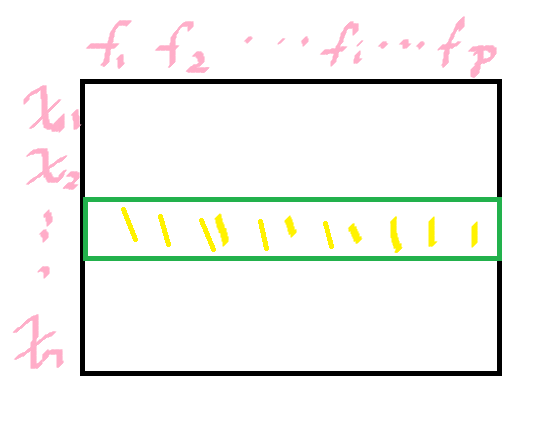 f₁ f₂ . . . . fᵢ . . . fₚ
x₁
x₂
:
.
xₙ